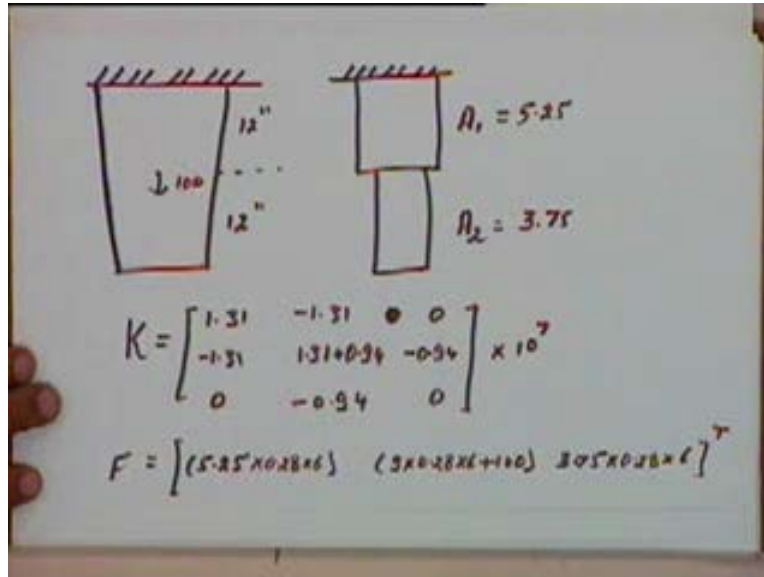 12"
↓ 100
12"
A₁ = 5.25
A₂ = 3.75
K = [ 1.31 -1.31 0 0
-1.31 1.31+0.94 -0.94
0 -0.94 0 ] × 10⁷
F = [(5.25×0.28×6) (9×0.28×6+100) 3.75×0.28×6]ᵀ